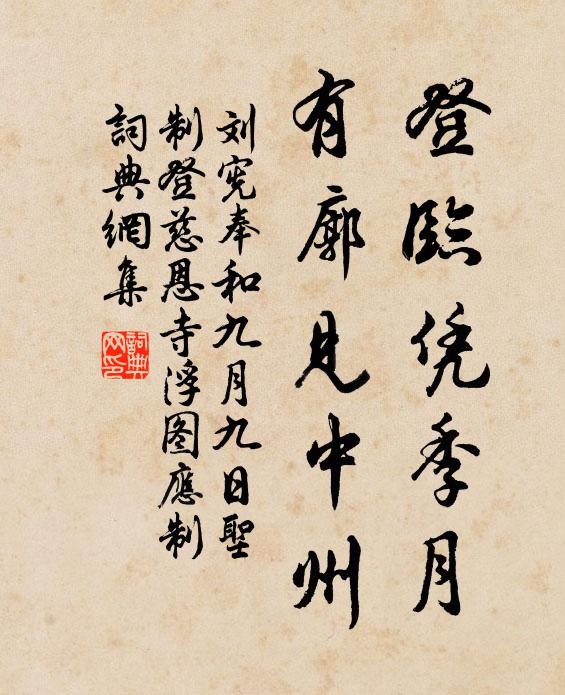 登臨凭季月
有廓見中州
刘宪奉和九月九日聖
制登慈恩寺浮图應制
詞典網集
詞典
网印